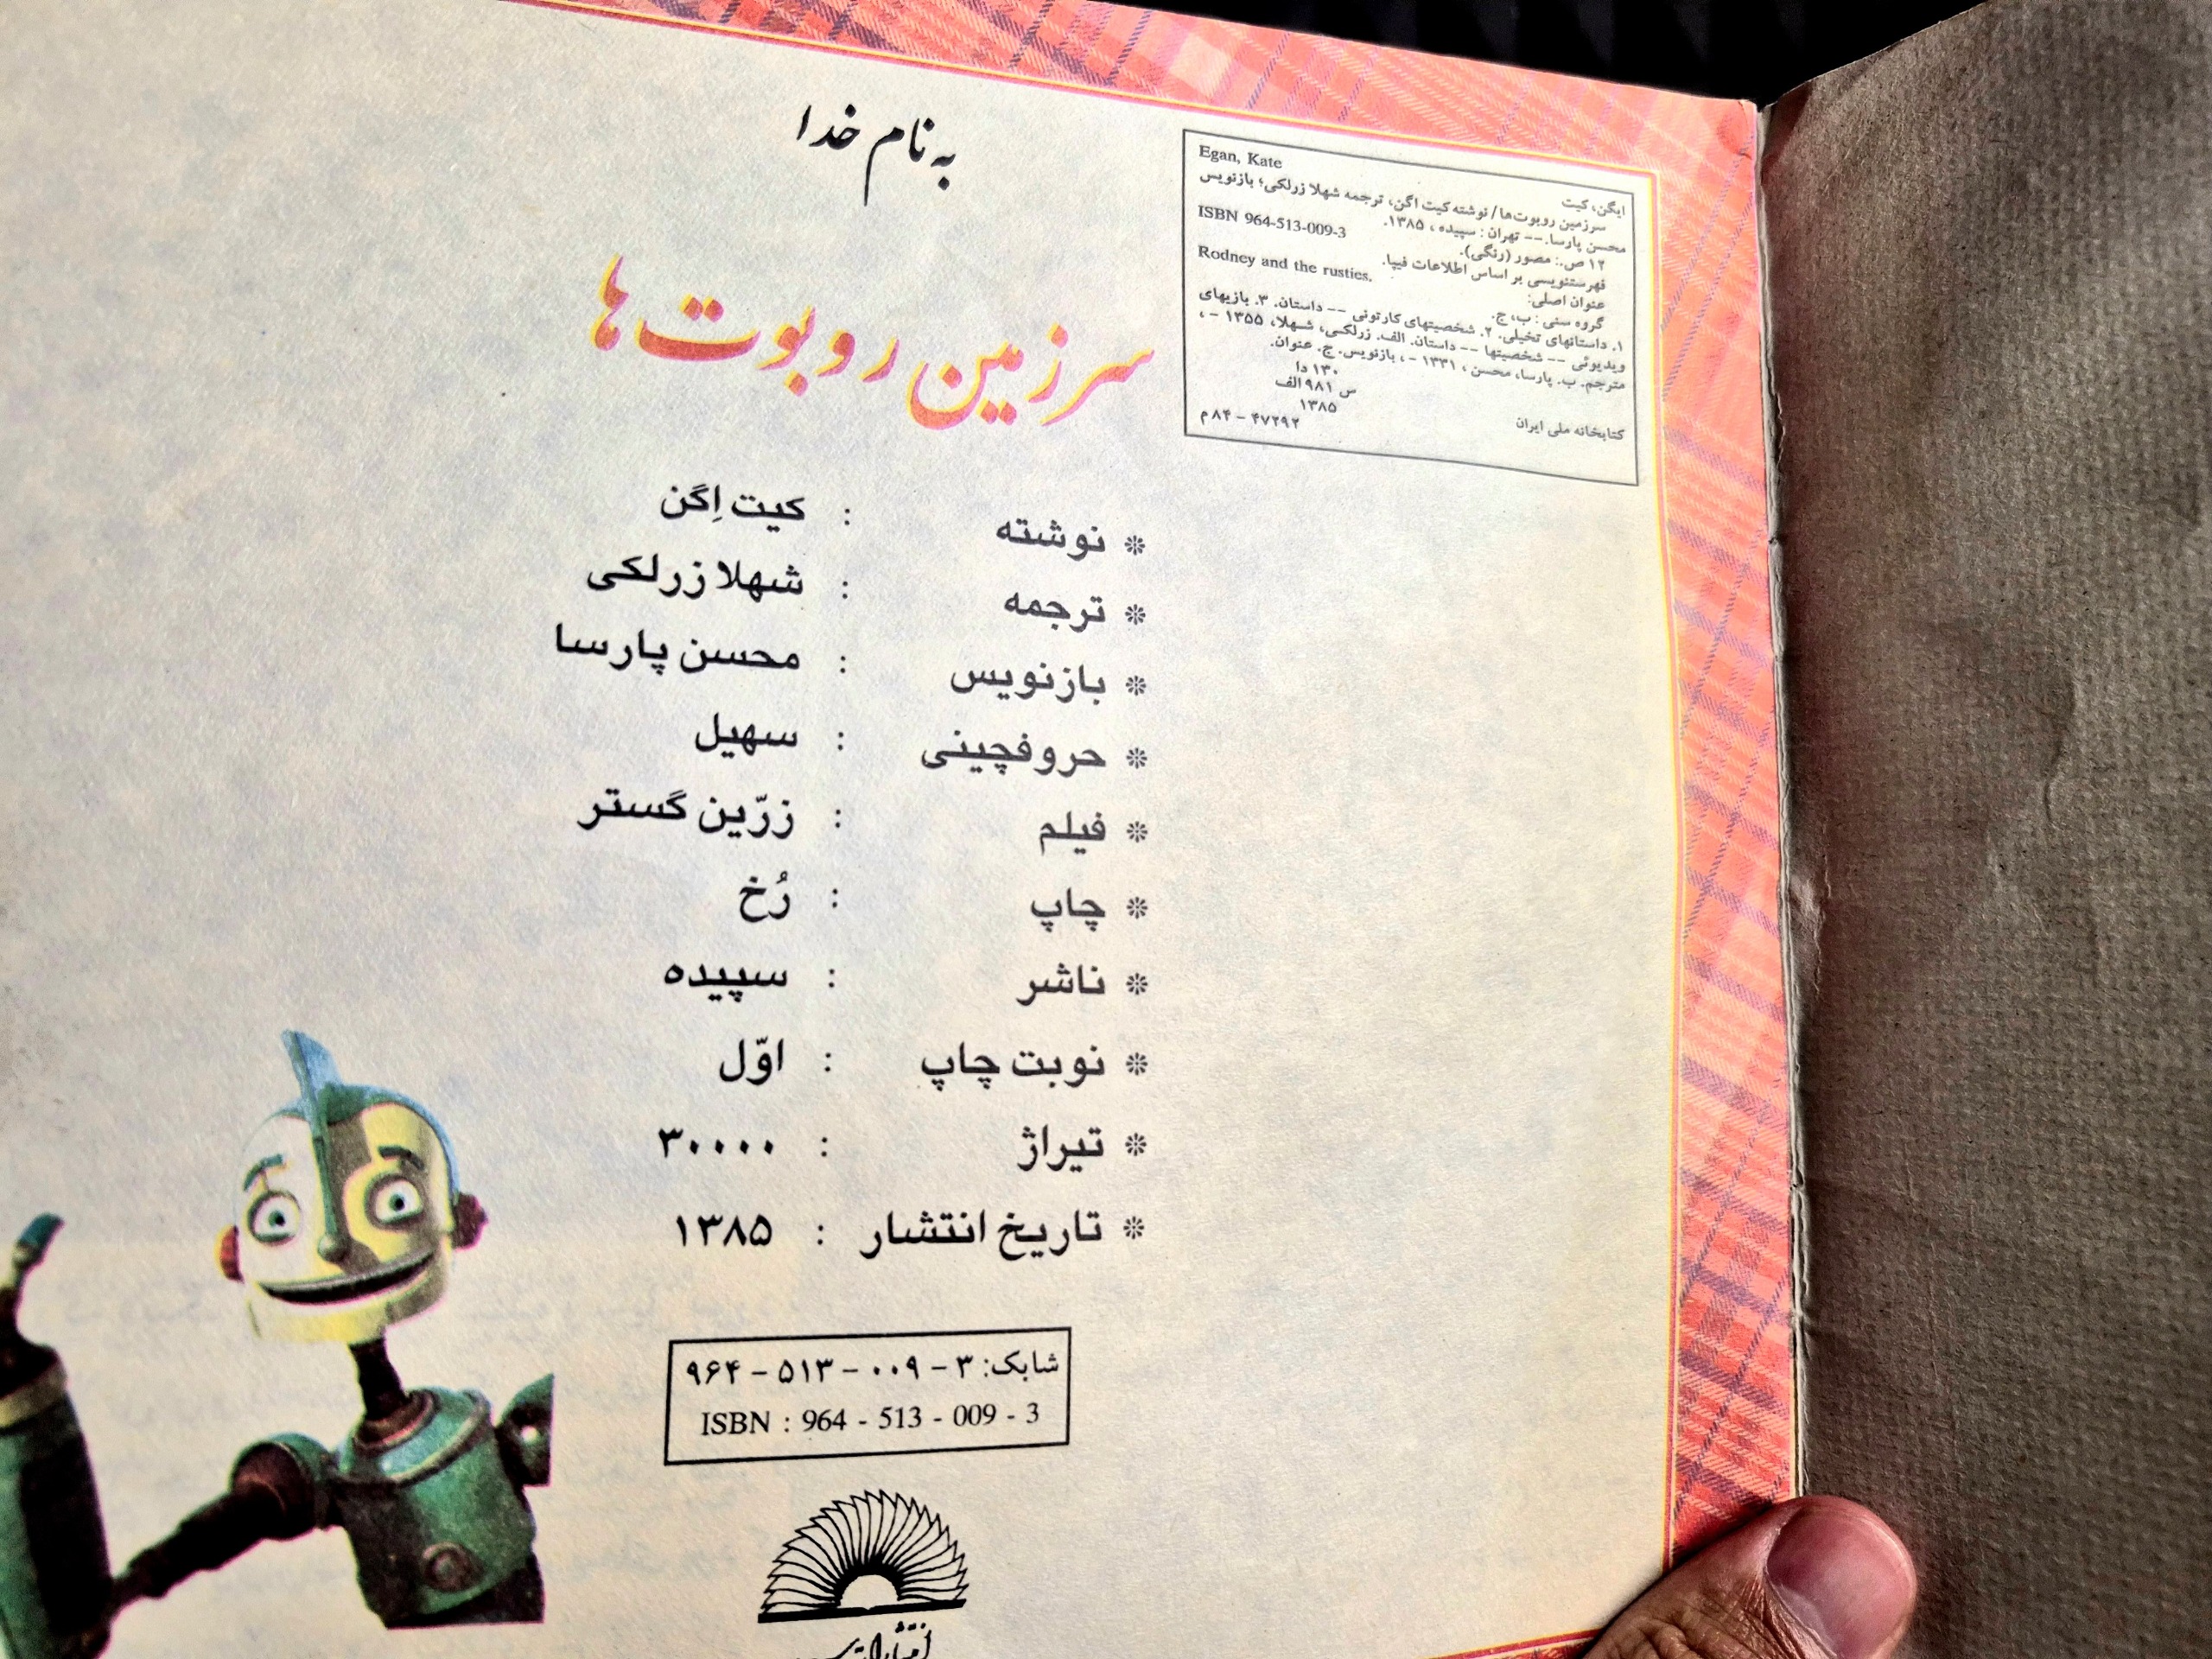 به نام خدا
سرزمین روبوت‌ها
Egan, Kate
ایگن، کیت
سرزمین روبوت‌ها / نوشته کیت اگن، ترجمه شهلا زرلکی؛ بازنویس
محسن پارسا.-- تهران: سپیده، ۱۳۸۵.
ISBN 964-513-009-3
۱۲ ص.: مصور (رنگی).
فهرستنویسی بر اساس اطلاعات فیپا.
عنوان اصلی: Rodney and the rusties.
گروه سنی: ب، ج.
۱. داستانهای تخیلی. ۲. شخصیتهای کارتونی -- داستان. ۳. بازیهای
ویدیوئی -- شخصیتها -- داستان. الف. زرلکی، شهلا، ۱۳۵۵ - ،
مترجم. ب. پارسا، محسن، ۱۳۳۱ - ، بازنویس. ج. عنوان.
۱۳۰ دا
س ۹۸۱ الف
۱۳۸۵
کتابخانه ملی ایران ۴۷۲۹۲ - ۸۴ م
❊ نوشته : کیت اِگن
❊ ترجمه : شهلا زرلکی
❊ بازنویس : محسن پارسا
❊ حروفچینی : سهیل
❊ فیلم : زرّین گستر
❊ چاپ : رُخ
❊ ناشر : سپیده
❊ نوبت چاپ : اوّل
❊ تیراژ : ۳۰۰۰۰
❊ تاریخ انتشار : ۱۳۸۵
شابک: ۳ - ۰۰۹ - ۵۱۳ - ۹۶۴
ISBN : 964 - 513 - 009 - 3